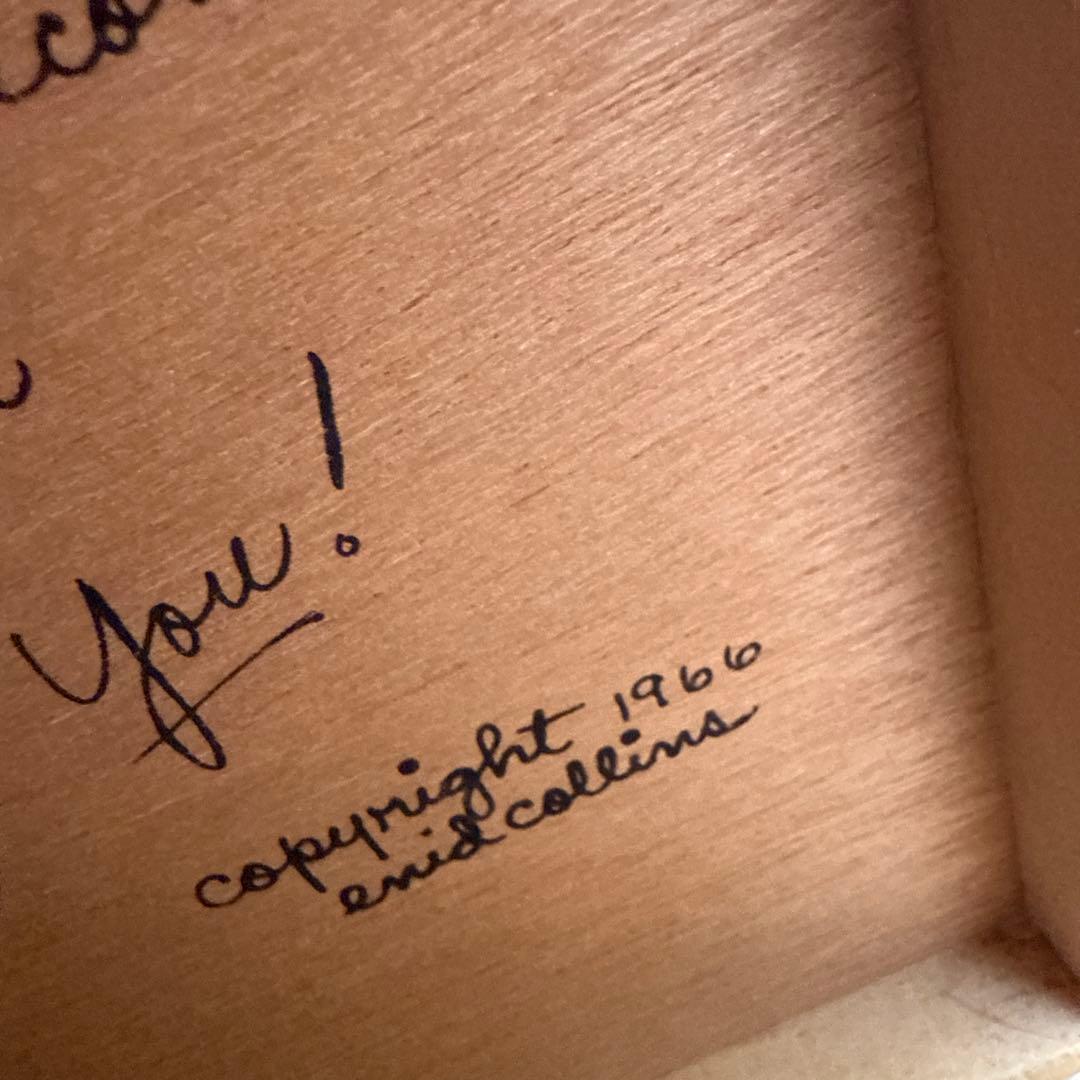 You!
copyright 1966
enid collins